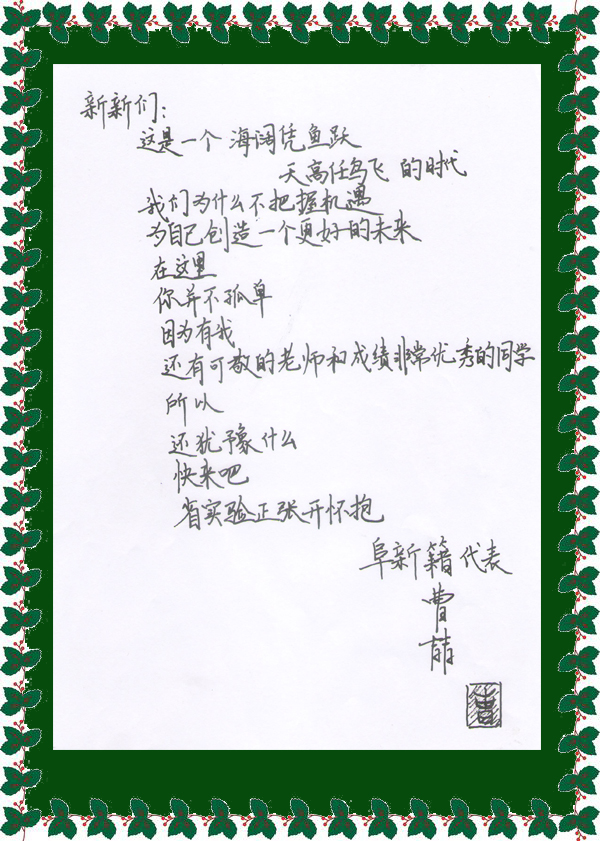 新新们：
这是一个 海阔凭鱼跃
天高任鸟飞 的时代
我们为什么不把握机遇
为自己创造一个更好的未来
在这里
你并不孤单
因为有我
还有可敬的老师和成绩非常优秀的同学
所以
还犹予象什么
快来吧
省实验正张开怀抱
阜新籍代表
曹